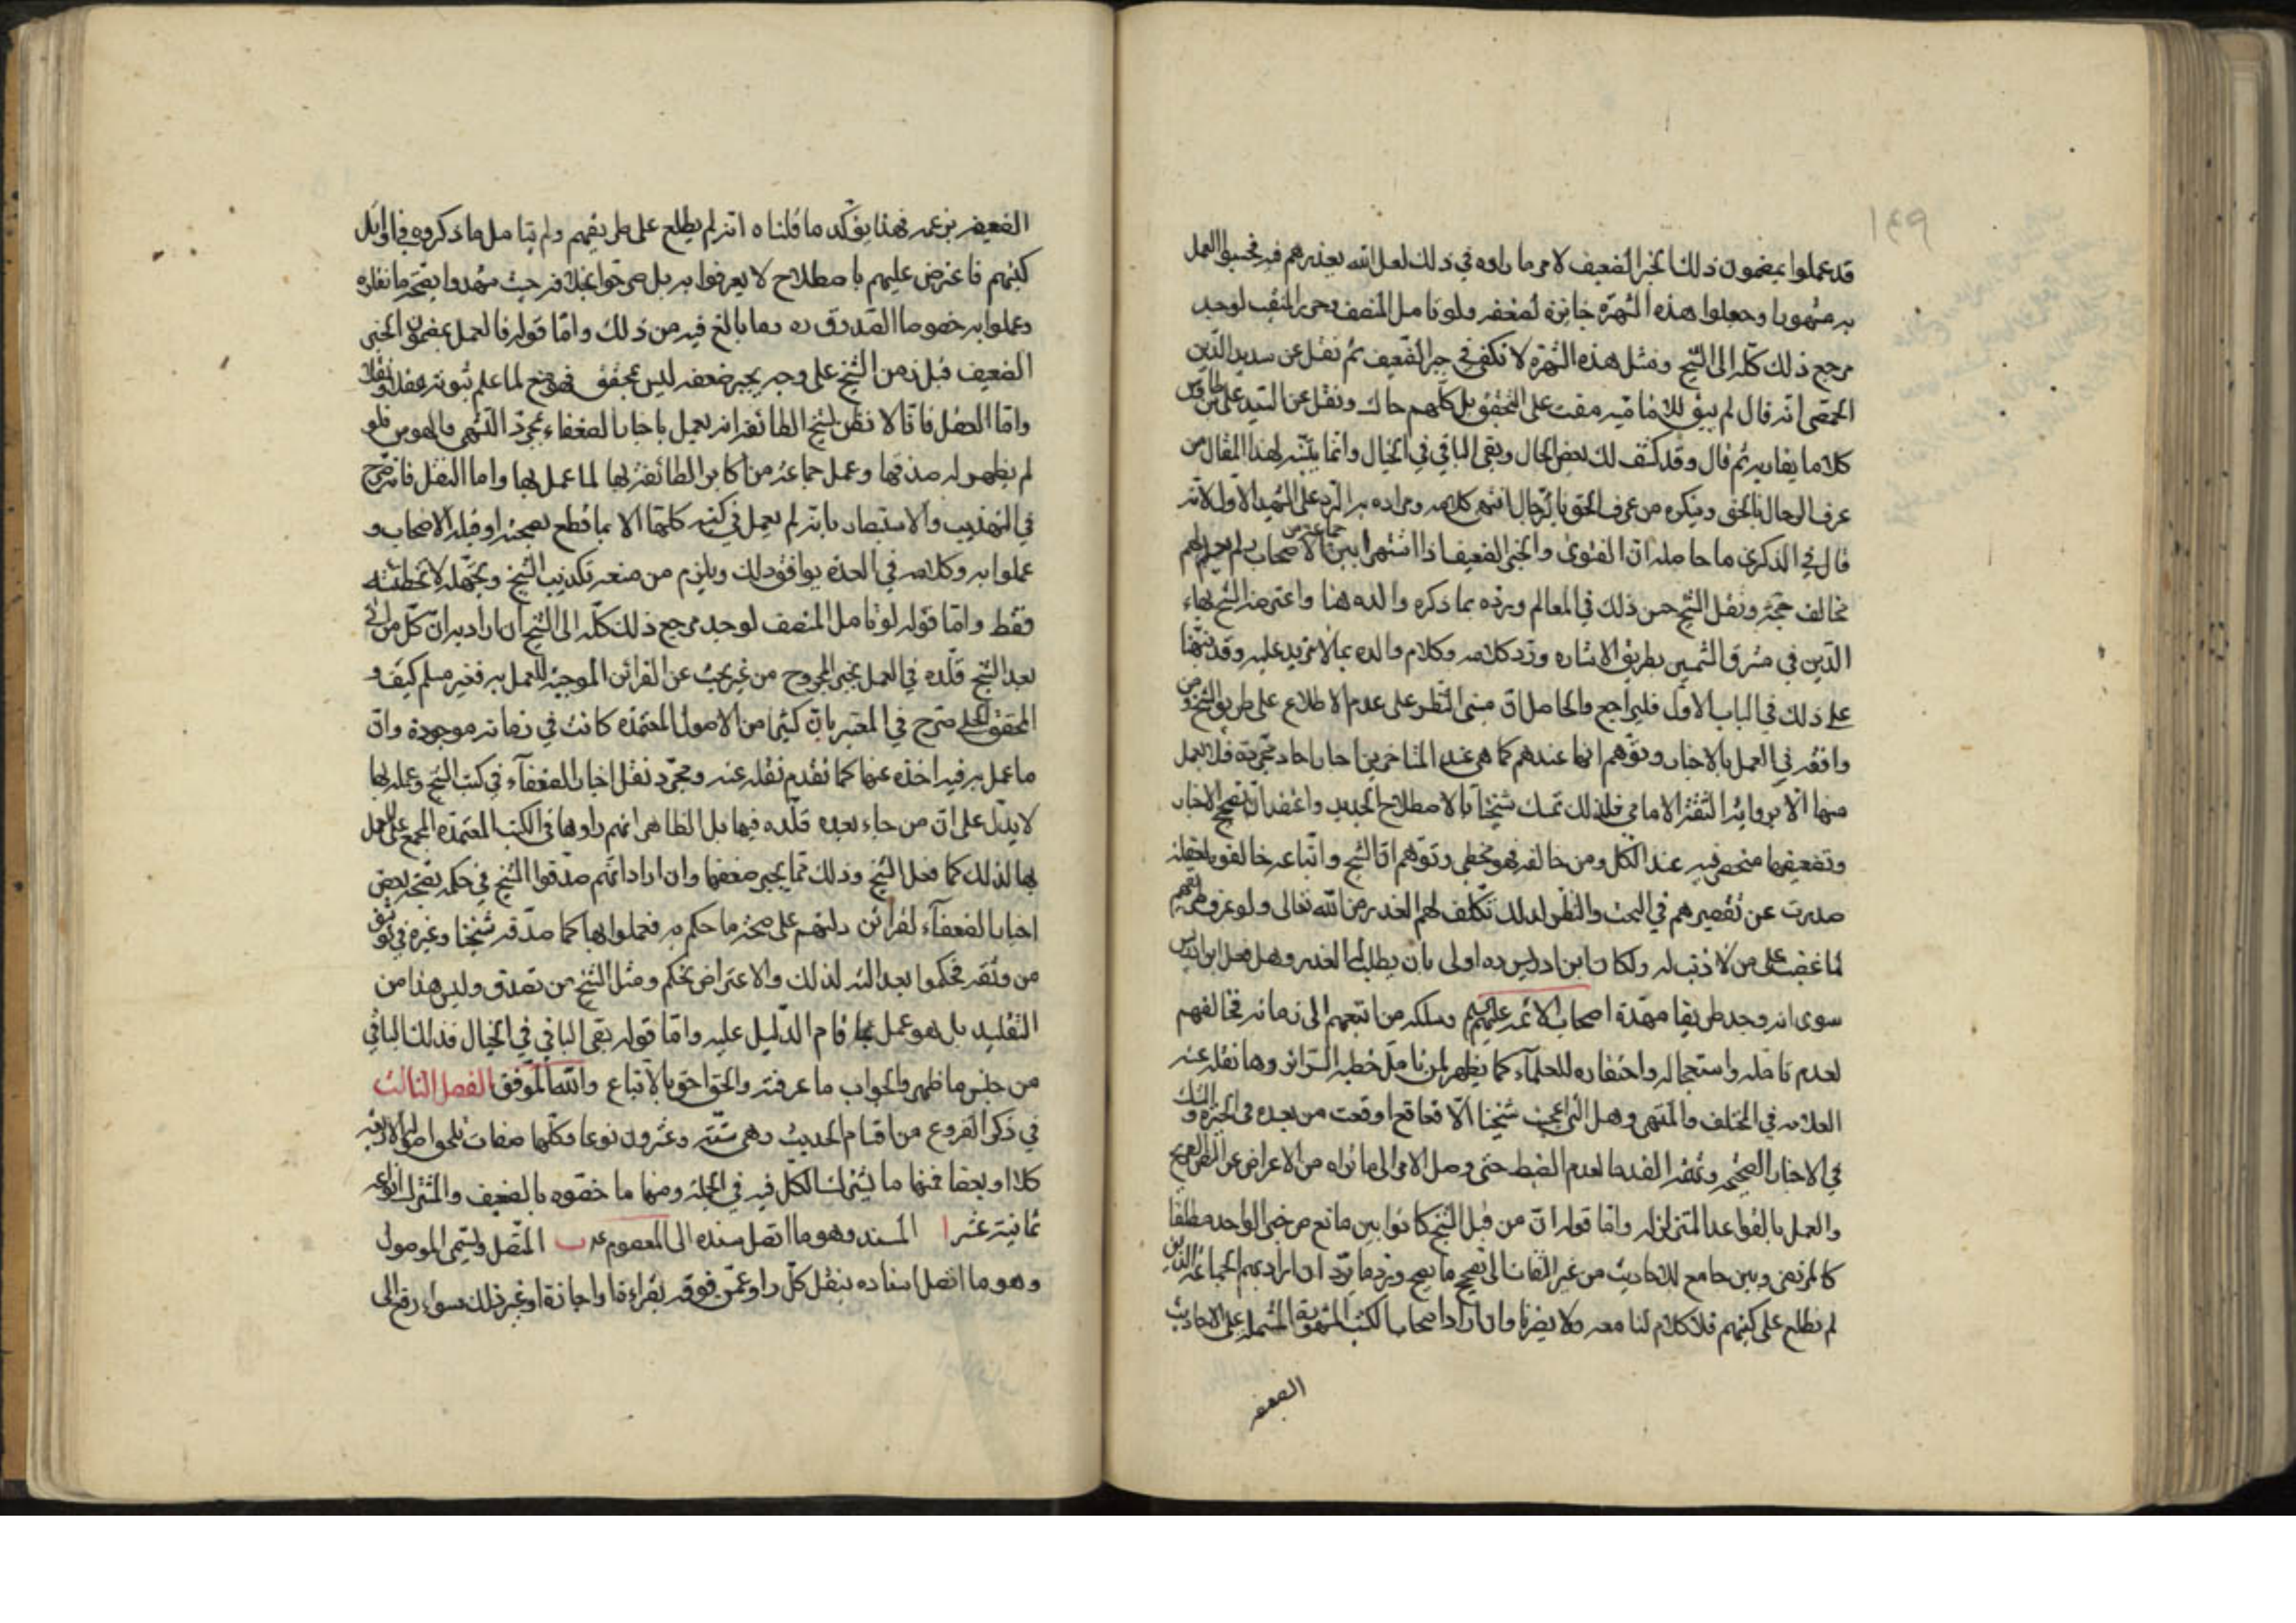 ١٤٩
قد عملوا بمضمون ذلك الخبر الضعيف لامر ما راوه في ذلك لعل الله يعذرهم فيه فحسبوا العمل
به مشهورا وجعلوا هذه الشهرة جابرة لضعفه ولو تامل المنصف وحرر المنقب لوجد
مرجع ذلك كله الى الشيخ ومثل هذه الشهرة لا تكفي في جبر الضعيف ثم نقل عن سديد الدين
الحمصي انه قال لم يبق للامامية مفت على التحقيق بل كلهم حاك ونقل عن السيد علي بن طاوس
كلاما يقاربه ثم قال وقد كشف لك بعض الحال وبقي الباقي في الخيال وانما يتنبه لهذا المقال من
عرف الرجال بالحق وينكره من عرف الحق بالرجال انتهى كلامه ومراده به الرد على الشهيد الاول لانه
قال في الذكرى ما حاصله ان الفتوى والخبر الضعيف اذا اشتهرا بين جماعة من الاصحاب ولم يعلم لهم
مخالف حجة ونقل الشيخ حسن ذلك في المعالم ورده بما ذكره والده هنا واعترضه الشيخ بهاء
الدين في مشرق الشمسين بطريق الاشارة ورد كلامه وكلام والده بما لا مزيد عليه وقد نبهنا
على ذلك في الباب الاول فليراجع والحاصل ان مبنى النظر على عدم الاطلاع على طريق الشيخ ومن
وافقه في العمل بالاخبار وتوهم انها عندهم كما هي عند المتاخرين اخبار احاد مجردة فلا يعمل
منها الا برواية الثقة الامامي فلذلك تمسك شيخنا بالاصطلاح الجديد واعتقد ان تصحيح الاخبار
وتضعيفها منحصر فيه عند الكل ومن خالفه فهو مخطي وتوهم ان الشيخ واتباعه خالفوه لغفلة
صدرت عن تقصيرهم في البحث والنظر لذلك تكلف لهم العذر من الله تعالى ولو عرف طريقهم
لما غضب على من لا ذنب له ولكان ابن ادريس ره اولى بان يطلب له العذر وهل فعل ابن ادريس
سوى انه وجد طريقا مهده اصحاب الائمة عليهم السلام وسلكه من اتبعهم الى زمانه فخالفهم
لعدم تامله واستعجاله واحتقاره للعلماء كما يظهر لمن تامل خطبة السرائر وما نقله عنه
العلامة في المختلف والمنتهى وهل التي اعجبت شيخنا الا قعاقع اوقعت من بعده في الحيرة والشك
في الاخبار الصحيحة وثقة القدما لعدم الضبط حتى وصل الامر الى ما تراه من الاعراض عن النص الصريح
والعمل بالقواعد المتزلزلة واما قوله ان من قبل الشيخ كانوا بين مانع من خبر الواحد مطلقا
كالمرتضى وبين جامع للاحاديث من غير التفات الى تصحيح ما يصح ورد ما يرد ان اراد بهم الجماعة الذين
لم نطلع على كتبهم فلا كلام لنا معه ولا يضرنا وان اراد اصحاب الكتب المشهورة المشتملة على الاحاديث
الضعيفه
الضعيفه بزعمه فهذا يؤكد ما قلناه انه لم يطلع على طريقهم ولم يتامل ما ذكروه في اوائل
كتبهم فاعترض عليهم باصطلاح لا يعرفوا به بل صرحوا بخلافه حيث شهدوا بصحة ما نقلوه
وعملوا به خصوصا الصدوق ره وما بالغ فيه من ذلك واما قوله فالعمل بمضمون الخبر
الضعيف قبل زمن الشيخ على وجه يجبر ضعفه ليس بمحقق فممنوع لما علم ثبوته عقلا ونقلا
واما العقل فانا لا نظن بشيخ الطائفة انه يعمل باخبار الضعفاء بمجرد التشهي والهوس فلو
لم يظهر له صدقها وعمل جماعة من اكابر الطائفة بها لما عمل بها واما النقل فانه صرح
في التهذيب والاستبصار بانه لم يعمل في كتبه كلها الا بما قطع بصحته او قبله الاصحاب و
عملوا به وكلامه في العدة يوافق ذلك ويلزم من منعه تكذيب الشيخ وتجهيله لا تخطئته
فقط واما قوله لو تامل المنصف لوجد مرجع ذلك كله الى الشيخ ان اراد به ان كل من اتى
بعد الشيخ قلده في العمل بخبر المجروح من غير بحث عن القرائن الموجبة للعمل به فغير مسلم كيف و
المحقق الحلي صرح في المعتبر بان كثيرا من الاصول المعتمدة كانت في زمانه موجودة وان
ما عمل به فيه اخذه عنها كما تقدم نقله عنه ومجرد نقل اخبار الضعفاء في كتب الشيخ وعمله بها
لا يدل على ان من جاء بعده قلده فيها بل الظاهر انهم راوها في الكتب المعتمدة المجمع على العمل
بها لذلك كما فعل الشيخ وذلك مما يجبر ضعفها وان اراد انهم صدقوا الشيخ في حكمه بصحة بعض
اخبار الضعفاء لقرائن دلتهم على صحة ما حكم به فعملوا بها كما صدقه شيخنا وغيره في توثيق
من وثقه فحكموا بعدالته لذلك والاعتراض تحكم ومثل الشيخ من تصدق وليس هذا من
التقليد بل هو عمل بما قام الدليل عليه واما قوله بقي الباقي في الخيال فذلك الباقي
من جنس ما ظهر والجواب ما عرفته والحق احق بالاتباع والله الموفق الفصل الثالث
في ذكر الفروع من اقسام الحديث وهي ستة وعشرون نوعا وكلها صفات تلحق اصولها الاربعة
كلا او بعضا فمنها ما يشترك الكل فيه في الجملة ومنها ما خصوه بالضعيف والمشترك انواعه
ثمانية عشر ا المسند وهو ما اتصل سنده الى المعصوم ع ب المتصل ويسمى الموصول
وهو ما اتصل اسناده بنقل كل راو عمن فوقه بقراءة او اجازة او غير ذلك سواء رفع الى